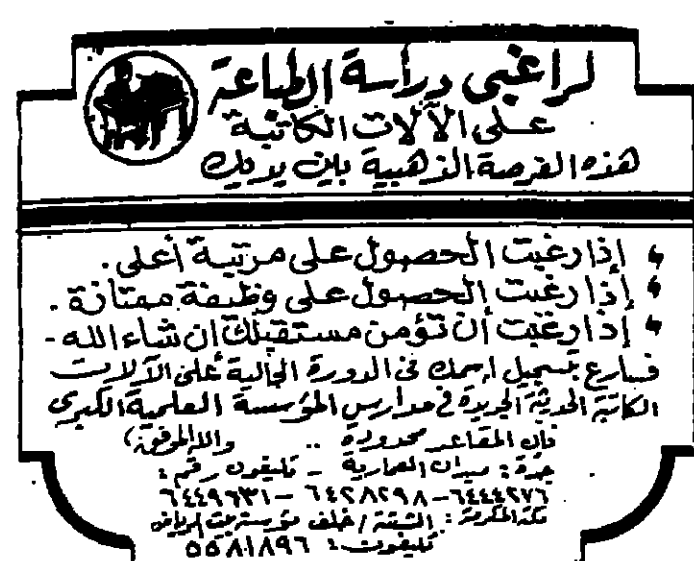 لراغبي دراسة الطباعة
على الآلات الكاتبة
هذه الفرصة الذهبية بين يديك
إذا رغبت الحصول على مرتبة أعلى.
إذا رغبت الحصول على وظيفة ممتازة.
إذا رغبت أن تؤمن مستقبلك ان شاء الله -
فسارع بتسجيل اسمك في الدورة الحالية على الآلات
الكاتبة الحديثة الجديدة في مدارس المؤسسة العلمية الكبرى
فان المقاعد محدودة .. والله الموفق،
جدة: ميدان العمارية - تليفون رقم:
٦٤٤٤٢٧٦-٦٤٢٨٢٩٨-٦٤٤٩٦٣١
مكة المكرمة: الششة / خلف مؤسسة الرياض
تليفون: ٥٥٨١٨٩٦